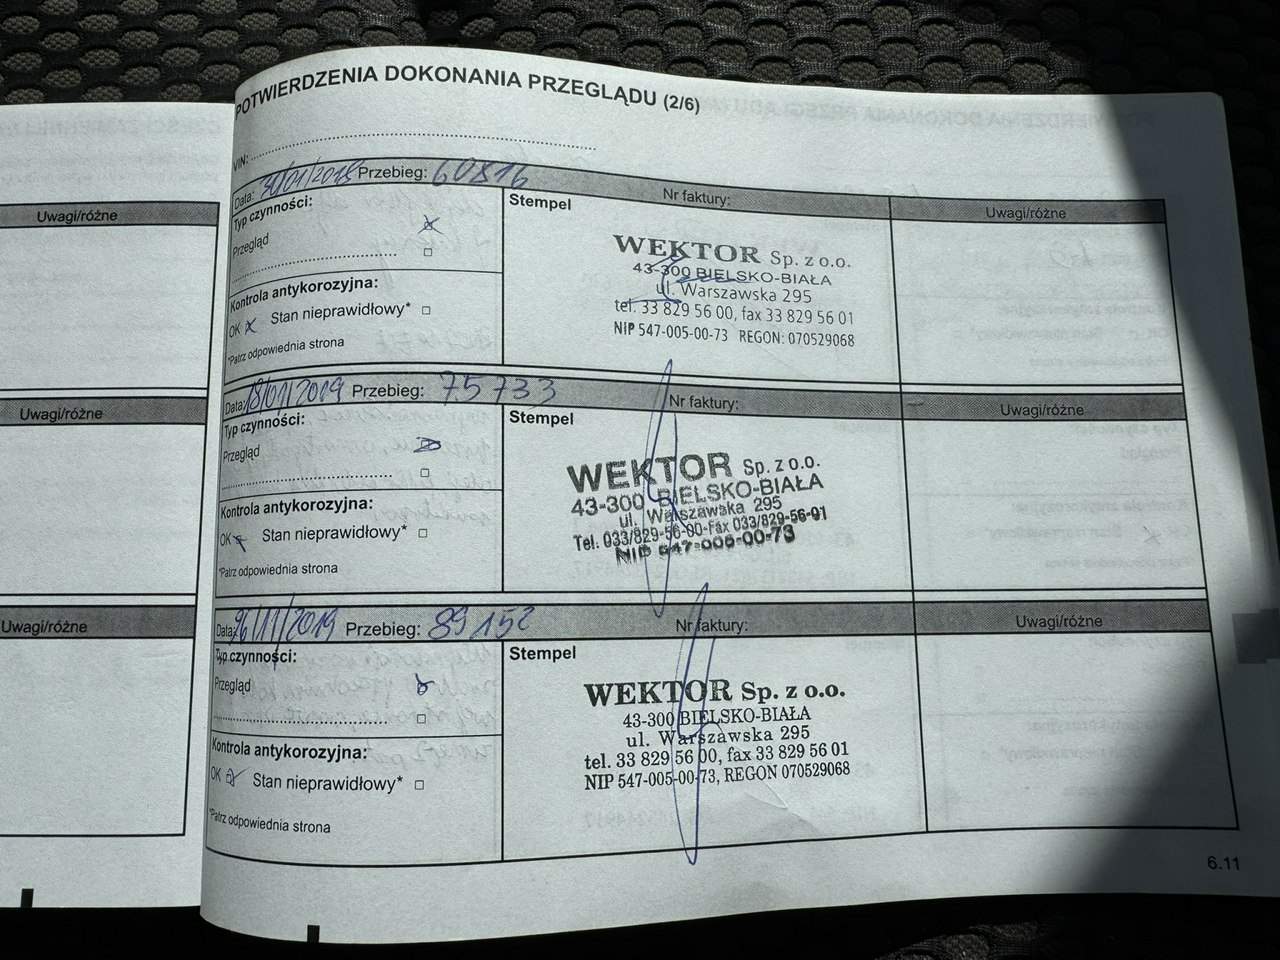 POTWIERDZENIA DOKONANIA PRZEGLĄDU (2/6)
VIN:
Data: 30/01/2018 Przebieg: 60816 Nr faktury: Uwagi/różne
Typ czynności:
Przegląd
Kontrola antykorozyjna:
OK Stan nieprawidłowy*
*Patrz odpowiednia strona
Stempel
WEKTOR Sp. z o.o.
43-300 BIELSKO-BIAŁA
ul. Warszawska 295
tel. 33 829 56 00, fax 33 829 56 01
NIP 547-005-00-73 REGON: 070529068
Data: 18/01/2019 Przebieg: 75733 Nr faktury: Uwagi/różne
Typ czynności:
Przegląd
Kontrola antykorozyjna:
OK Stan nieprawidłowy*
*Patrz odpowiednia strona
Stempel
WEKTOR Sp. z o.o.
43-300 BIELSKO-BIAŁA
ul. Warszawska 295
Tel. 033/829-56-00-Fax 033/829-56-01
NIP 547-005-00-73
Data: 26/11/2019 Przebieg: 89152 Nr faktury: Uwagi/różne
Typ czynności:
Przegląd
Kontrola antykorozyjna:
OK Stan nieprawidłowy*
*Patrz odpowiednia strona
Stempel
WEKTOR Sp. z o.o.
43-300 BIELSKO-BIAŁA
ul. Warszawska 295
tel. 33 829 56 00, fax 33 829 56 01
NIP 547-005-00-73, REGON 070529068
6.11
Uwagi/różne
Uwagi/różne
Uwagi/różne